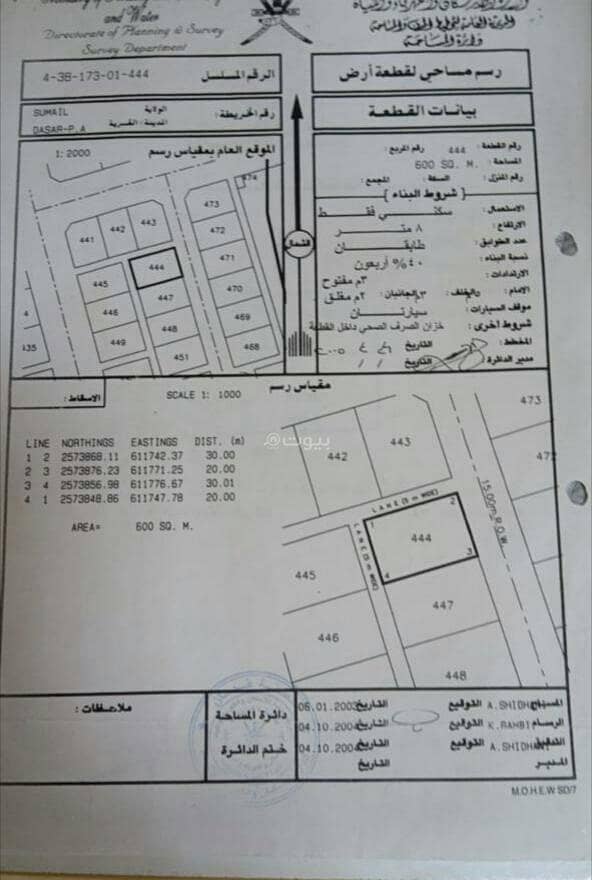 and Water
Directorate of Planning & Survey
Survey Department
دائرة المساحة
4-38-173-01-444 الرقم المسلسل :
رسم مساحي لقطعة أرض
SUMAIL الولاية
DASAR-P.A المدينة / القرية
رقم الخريطة :
بيانات القطعة
1: 2000 الموقع العام بمقياس رسم
رقم القطعة : 444 رقم المربع :
المساحة : 600 SQ. M.
رقم المنزل : السكة : المجمع :
شروط البناء
الاستعمال : سكني فقط
الارتفاع : ٨ متر
عدد الطوابق : طابقان
نسبة البناء : ٤٠% أربعون
الارتدادات : ٣م مفتوح
الامام : الخلف : ٣م الجانبان : ٢م مغلق
موقف السيارات : سيارتان
شروط أخرى : خزان الصرف الصحي داخل القطعة
المخطط : التاريخ
مدير الدائرة التاريخ / /
الشمال
474
473
472
471
470
469
468
441
442
443
444
445
446
447
448
449
451
435
الاسقاط :
SCALE 1: 1000 مقياس رسم
LINE NORTHINGS EASTINGS DIST. (m)
1 2 2573868.11 611742.37 30.00
2 3 2573876.23 611771.25 20.00
3 4 2573856.98 611776.67 30.01
4 1 2573848.86 611747.78 20.00
AREA= 600 SQ. M.
بيوت
473
472
443
442
LANE (5 m WIDE)
15.00m R.O.W.
1
2
3
4
444
LANE (5 m WIDE)
445
447
446
448
ملاحظات :
دائرة المساحة
ختم الدائرة
المساح A.SHIDHANI التوقيع التاريخ 06.01.2003
الرسام K.RAHBI التوقيع التاريخ 04.10.2004
التدقيق A.SHIDHANI التوقيع التاريخ 04.10.2004
المدير التاريخ
M.O.H.E.W SD/7